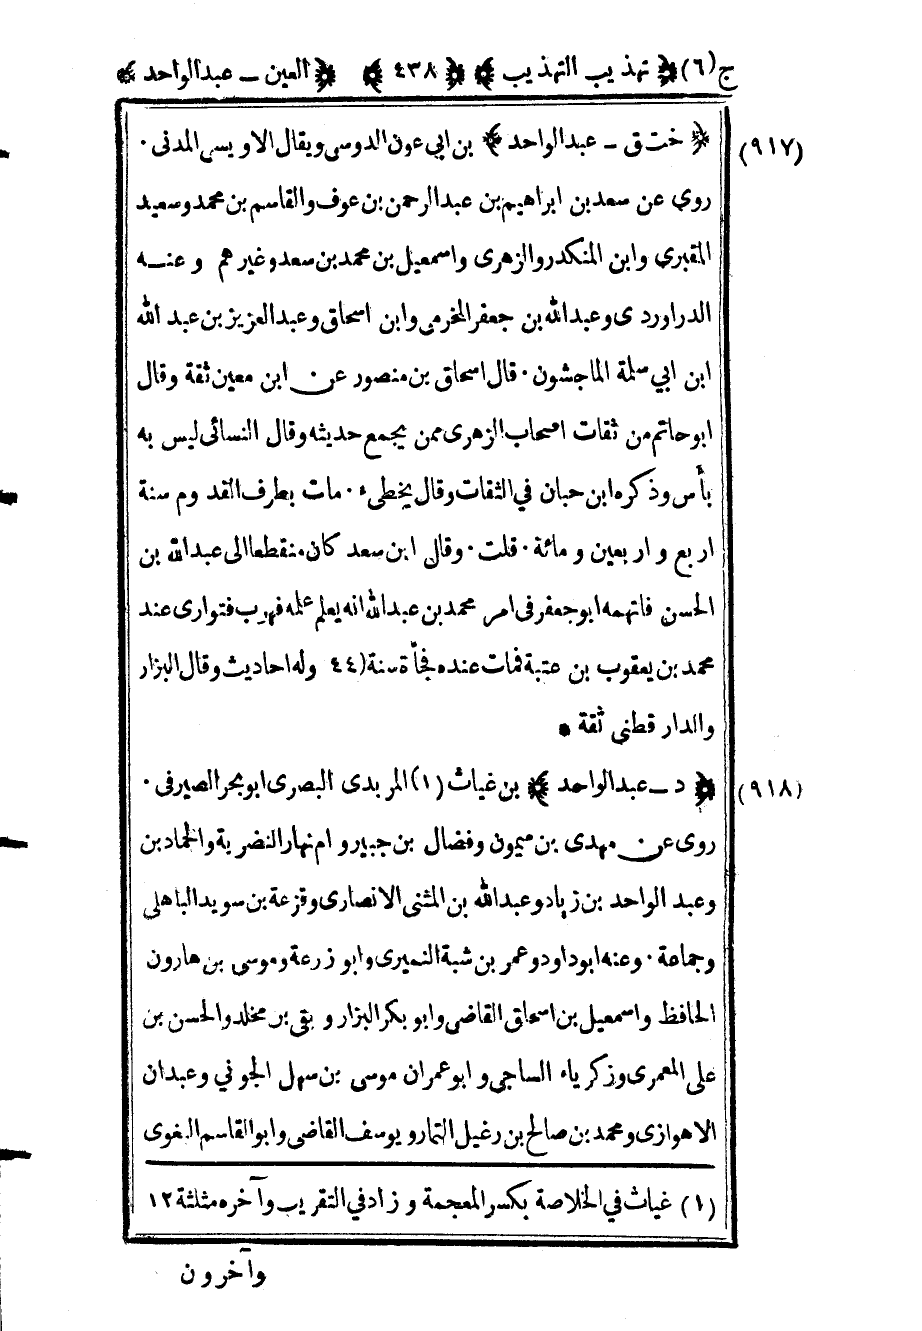 ج (٦) ﴿ تهذيب التهذيب ﴾ ﴿ ٤٣٨ ﴾ ﴿ العين ــ عبدالواحد ﴾
(٩١٧) ﴿ خت ق ــ عبدالواحد ﴾ بن ابي عون الدوسى ويقال الاويسى المدنى ·
روى عن سعد بن ابراهيم بن عبدالرحمن بن عوف والقاسم بن محمد وسعيد
المقبري وابن المنكدر والزهرى واسمعيل بن محمد بن سعد وغيرهم وعنــه
الدراوردى وعبدالله بن جعفر المخرمى وابن اسحاق وعبدالعزيز بن عبد الله
ابن ابي سلمة الماجشون · قال اسحاق بن منصور عن ابن معين ثقة وقال
ابوحاتم من ثقات اصحاب الزهرى ممن يجمع حديثه وقال النسائى ليس به
بأس وذكره ابن حبان في الثقات وقال يخطىء · مات بطرف القدوم سنة
اربع و اربعين و مائة · قلت · وقال ابن سعد كان منقطعا الى عبدالله بن
الحسن فاتهمه ابوجعفر فى امر محمد بن عبدالله انه يعلم علمه فهرب فتوارى عند
محمد بن يعقوب بن عتبة فمات عنده فجأة سنة (٤٤ وله احاديث وقال البزار
والدار قطنى ثقة •
(٩١٨) ﴿ د ــ عبدالواحد ﴾ بن غياث (١) المربدى البصرى ابوبحر الصيرفى ·
روى عن مهدى بن ميمون وفضال بن جبير وام نهار النضرية والحماد بن
وعبد الواحد بن زياد وعبدالله بن المثنى الانصارى وقزعة بن سويد الباهلى
وجماعة · وعنه ابوداود وعمر بن شبة النميرى وابو زرعة وموسى بن هارون
الحافظ واسمعيل بن اسحاق القاضى وابو بكر البزار و بقى بر مخلد والحسن بن
على المعمرى وزكرياء الساجى و ابوعمران موسى بن سهل الجوني وعبدان
الاهوازى ومحمد بن صالح بن رغيل التمار و يوسف القاضى وابو القاسم البغوى
(١) غياث في الخلاصة بكسر المعجمة و زاد في التقريب وآخره مثلثة ١٢
وآخرون